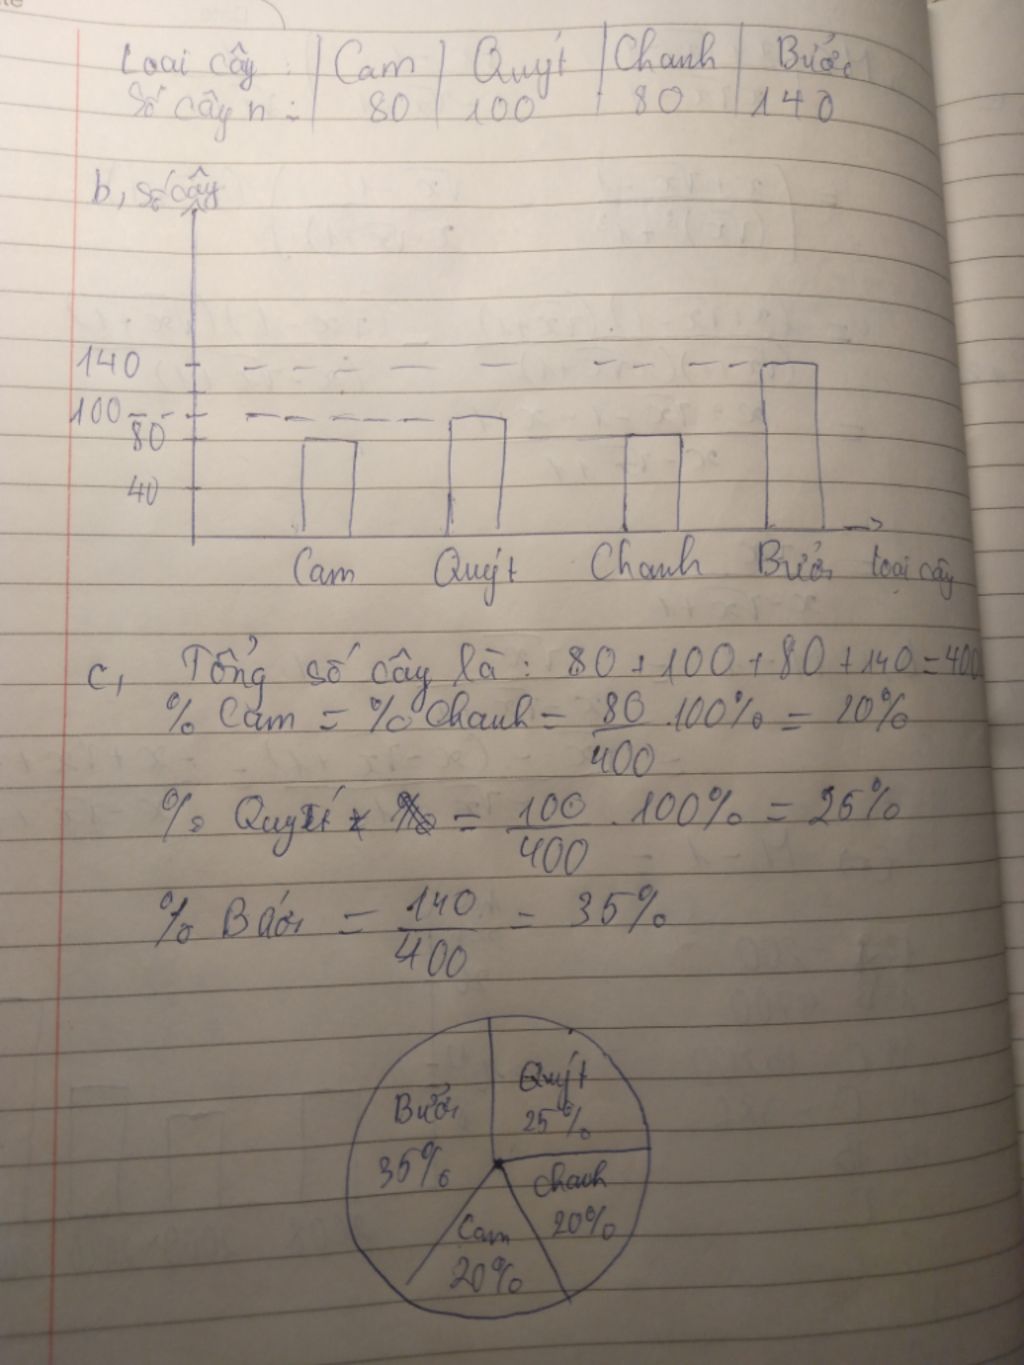 Loại cây : | Cam | Quýt | Chanh | Bưởi
Số cây n : | 80 | 100 | 80 | 140
b, số cây
140
100
80
40
Cam Quýt Chanh Bưởi loại cây
c, Tổng số cây là : 80 + 100 + 80 + 140 = 400
% Cam = % Chanh = 80/400 . 100% = 20%
% Quýt = 100/400 . 100% = 25%
% Bưởi = 140/400 = 35%
Quýt
25%
Bưởi
35%
Chanh
20%
Cam
20%